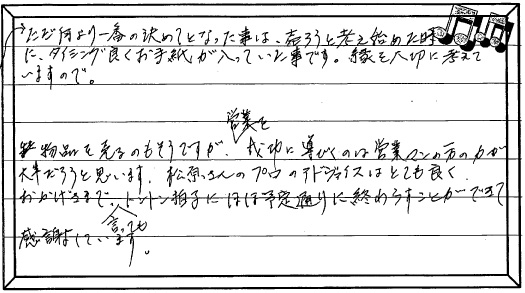 ただ何より一番の決めてとなった事は、売ろうと考え始めた時
に、タイミング良くお手紙が入っていた事です。縁を大切に考えて
いますので。
営業を
物品を売るのもそうですが、成功に導びくのは営業マンの方の力が
大半だろうと思います。松原さんのプロのアドバイスはとても良く、
おかげさまで、トントン拍子にほぼ予定通りに終わらすことができて
言っても
感謝しています。